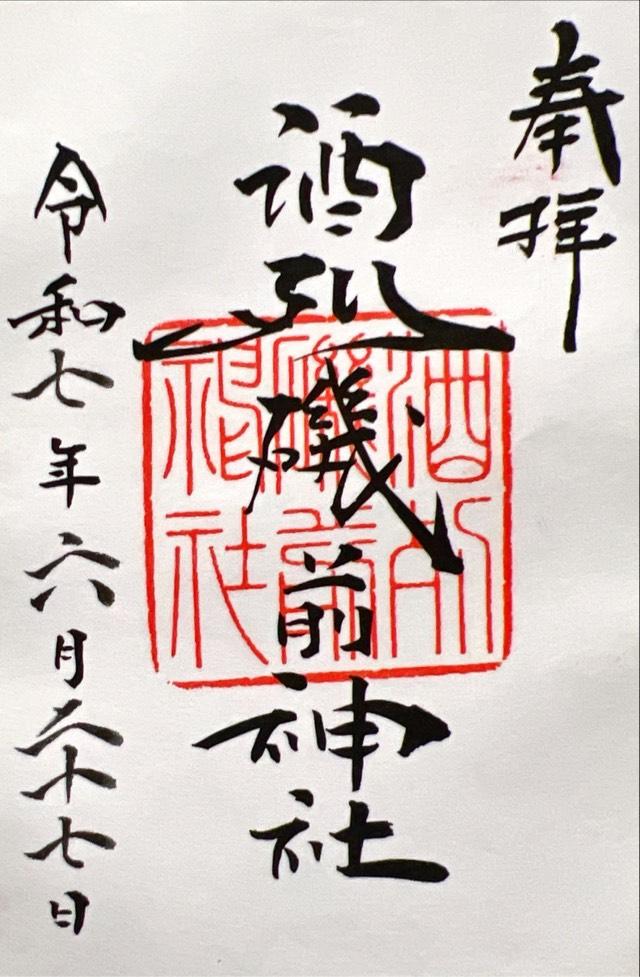 奉拝
酒列磯前神社
酒列
磯前
神社
令和七年六月二十七日